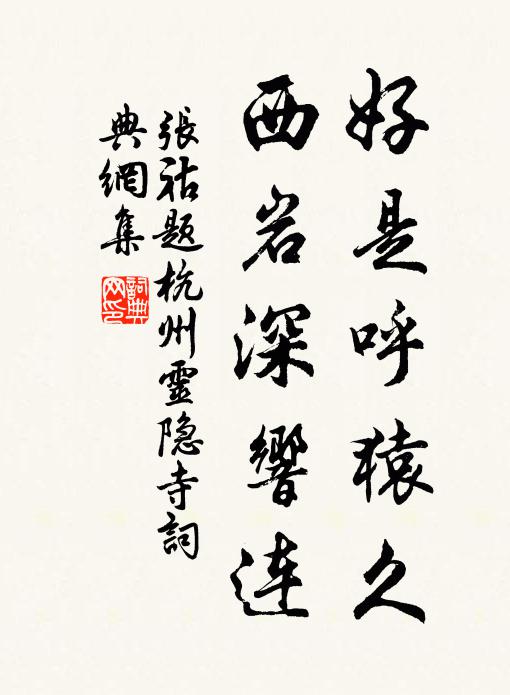 好是呼猿久
西岩深響連
張祜題杭州靈隐寺詞
典網集
詞典網印